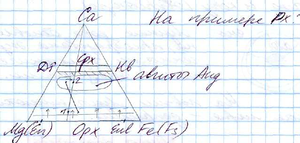 Ca
На примере Px
Di Cpx Hb
авгиты Aug
Mg(En) Opx Fe(Fs)